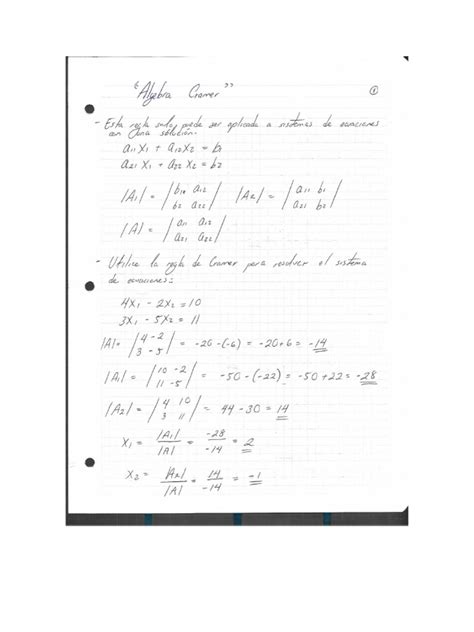 "Algebra Cramer" 1
- Esta regla solo puede ser aplicada a sistemas de ecuaciones
con una solución:
a11X1 + a12X2 = b1
a21X1 + a22X2 = b2
|A1| = | b1 a12 | |A2| = | a11 b1 |
| b2 a22 | | a21 b2 |
|A| = | a11 a12 |
| a21 a22 |
- Utilice la regla de Cramer para resolver el sistema
de ecuaciones:
4X1 - 2X2 = 10
3X1 - 5X2 = 11
|A| = | 4 -2 | = -20 -(-6) = -20+6 = -14
| 3 -5 |
|A1| = | 10 -2 | = -50 -(-22) = -50+22 = -28
| 11 -5 |
|A2| = | 4 10 | = 44 - 30 = 14
| 3 11 |
X1 = |A1| / |A| = -28 / -14 = 2
X2 = |A2| / |A| = 14 / -14 = -1